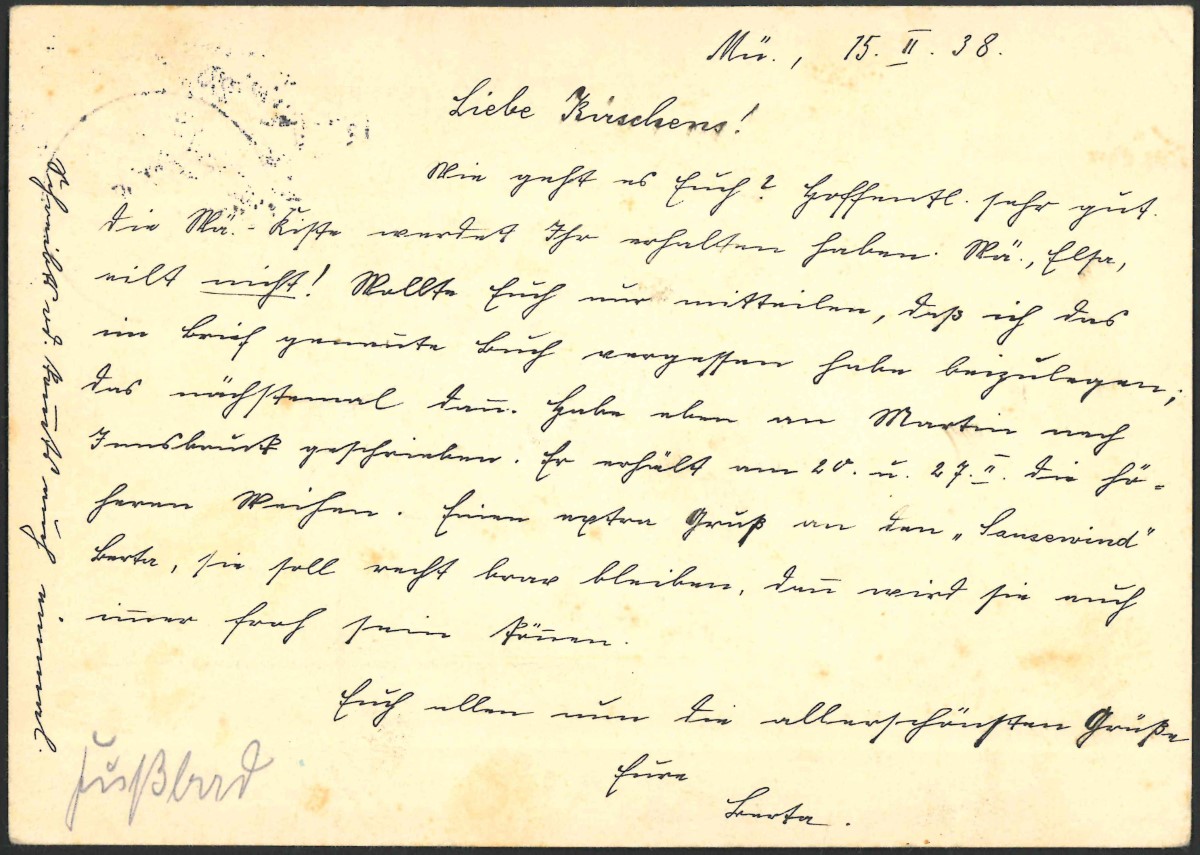 Mü., 15. II. 38.
Liebe Kirschens!
Wie geht es Euch? Hoffentl. sehr gut.
Die Wä.-Kiste werdet Ihr erhalten haben. Wä., Elsa,
eilt nicht! Wollte Euch nur mitteilen, daß ich das
im Brief genan̄te Buch vergessen habe beizulegen;
das nächstemal dan̄. Habe eben an Martin nach
Innsbruck geschrieben. Er erhält am 20. u. 27. II. die hö-
heren Weihen. Einen extra Gruß an den „Sausewind"
Berta, sie soll recht brav bleiben, dan̄ wird sie auch
im̄er froh sein kön̄en.
Euch allen nun die allerschönsten Grüße
Eure
Berta.
Schreibt auch einmal.
Fußbad